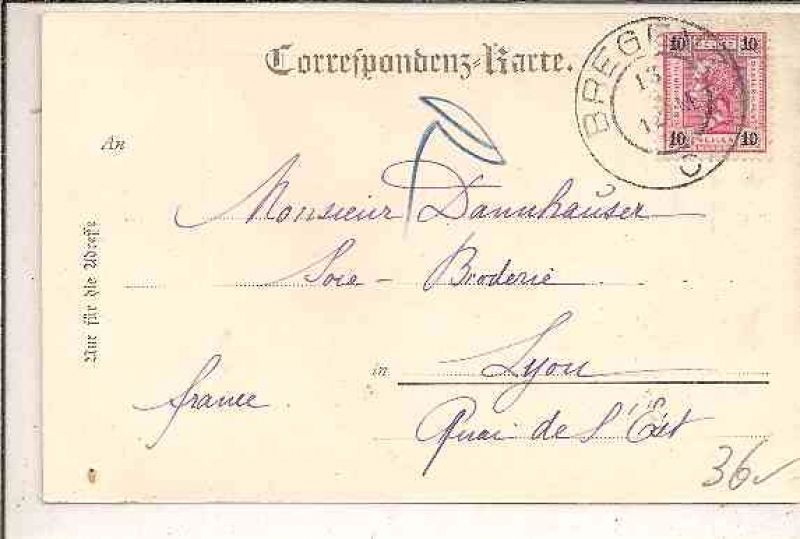 Correspondenz-Karte.
BREGE
13
12
C
10 10
10 10
An
Monsieur Dannhauser
Soie - Broderie
in Lyon
france
Quai de l'Est
Nur für die Adresse
36